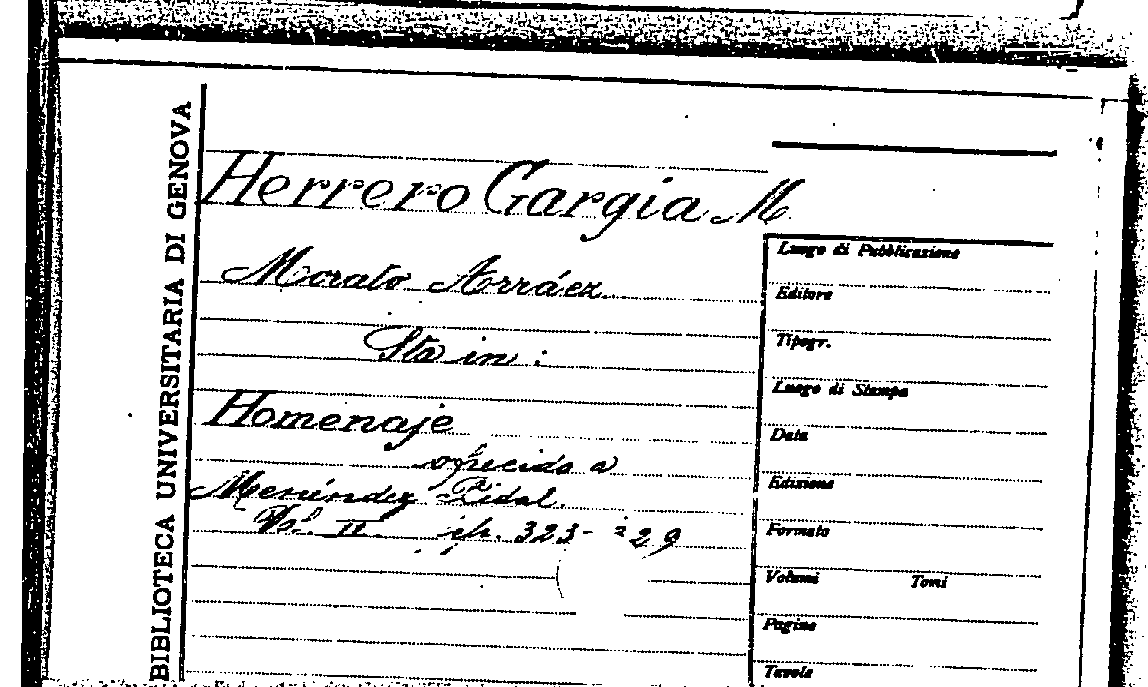 BIBLIOTECA UNIVERSITARIA DI GENOVA
Herrero Gargia M
Morato Arráez
Sta in:
Homenaje
ofrecido a
Menéndez Pidal.
Vol. II. pp. 323-329
Luogo di Pubblicazione
Editore
Tipogr.
Luogo di Stampa
Data
Edizione
Formato
Volumi Tomi
Pagine
Tavole